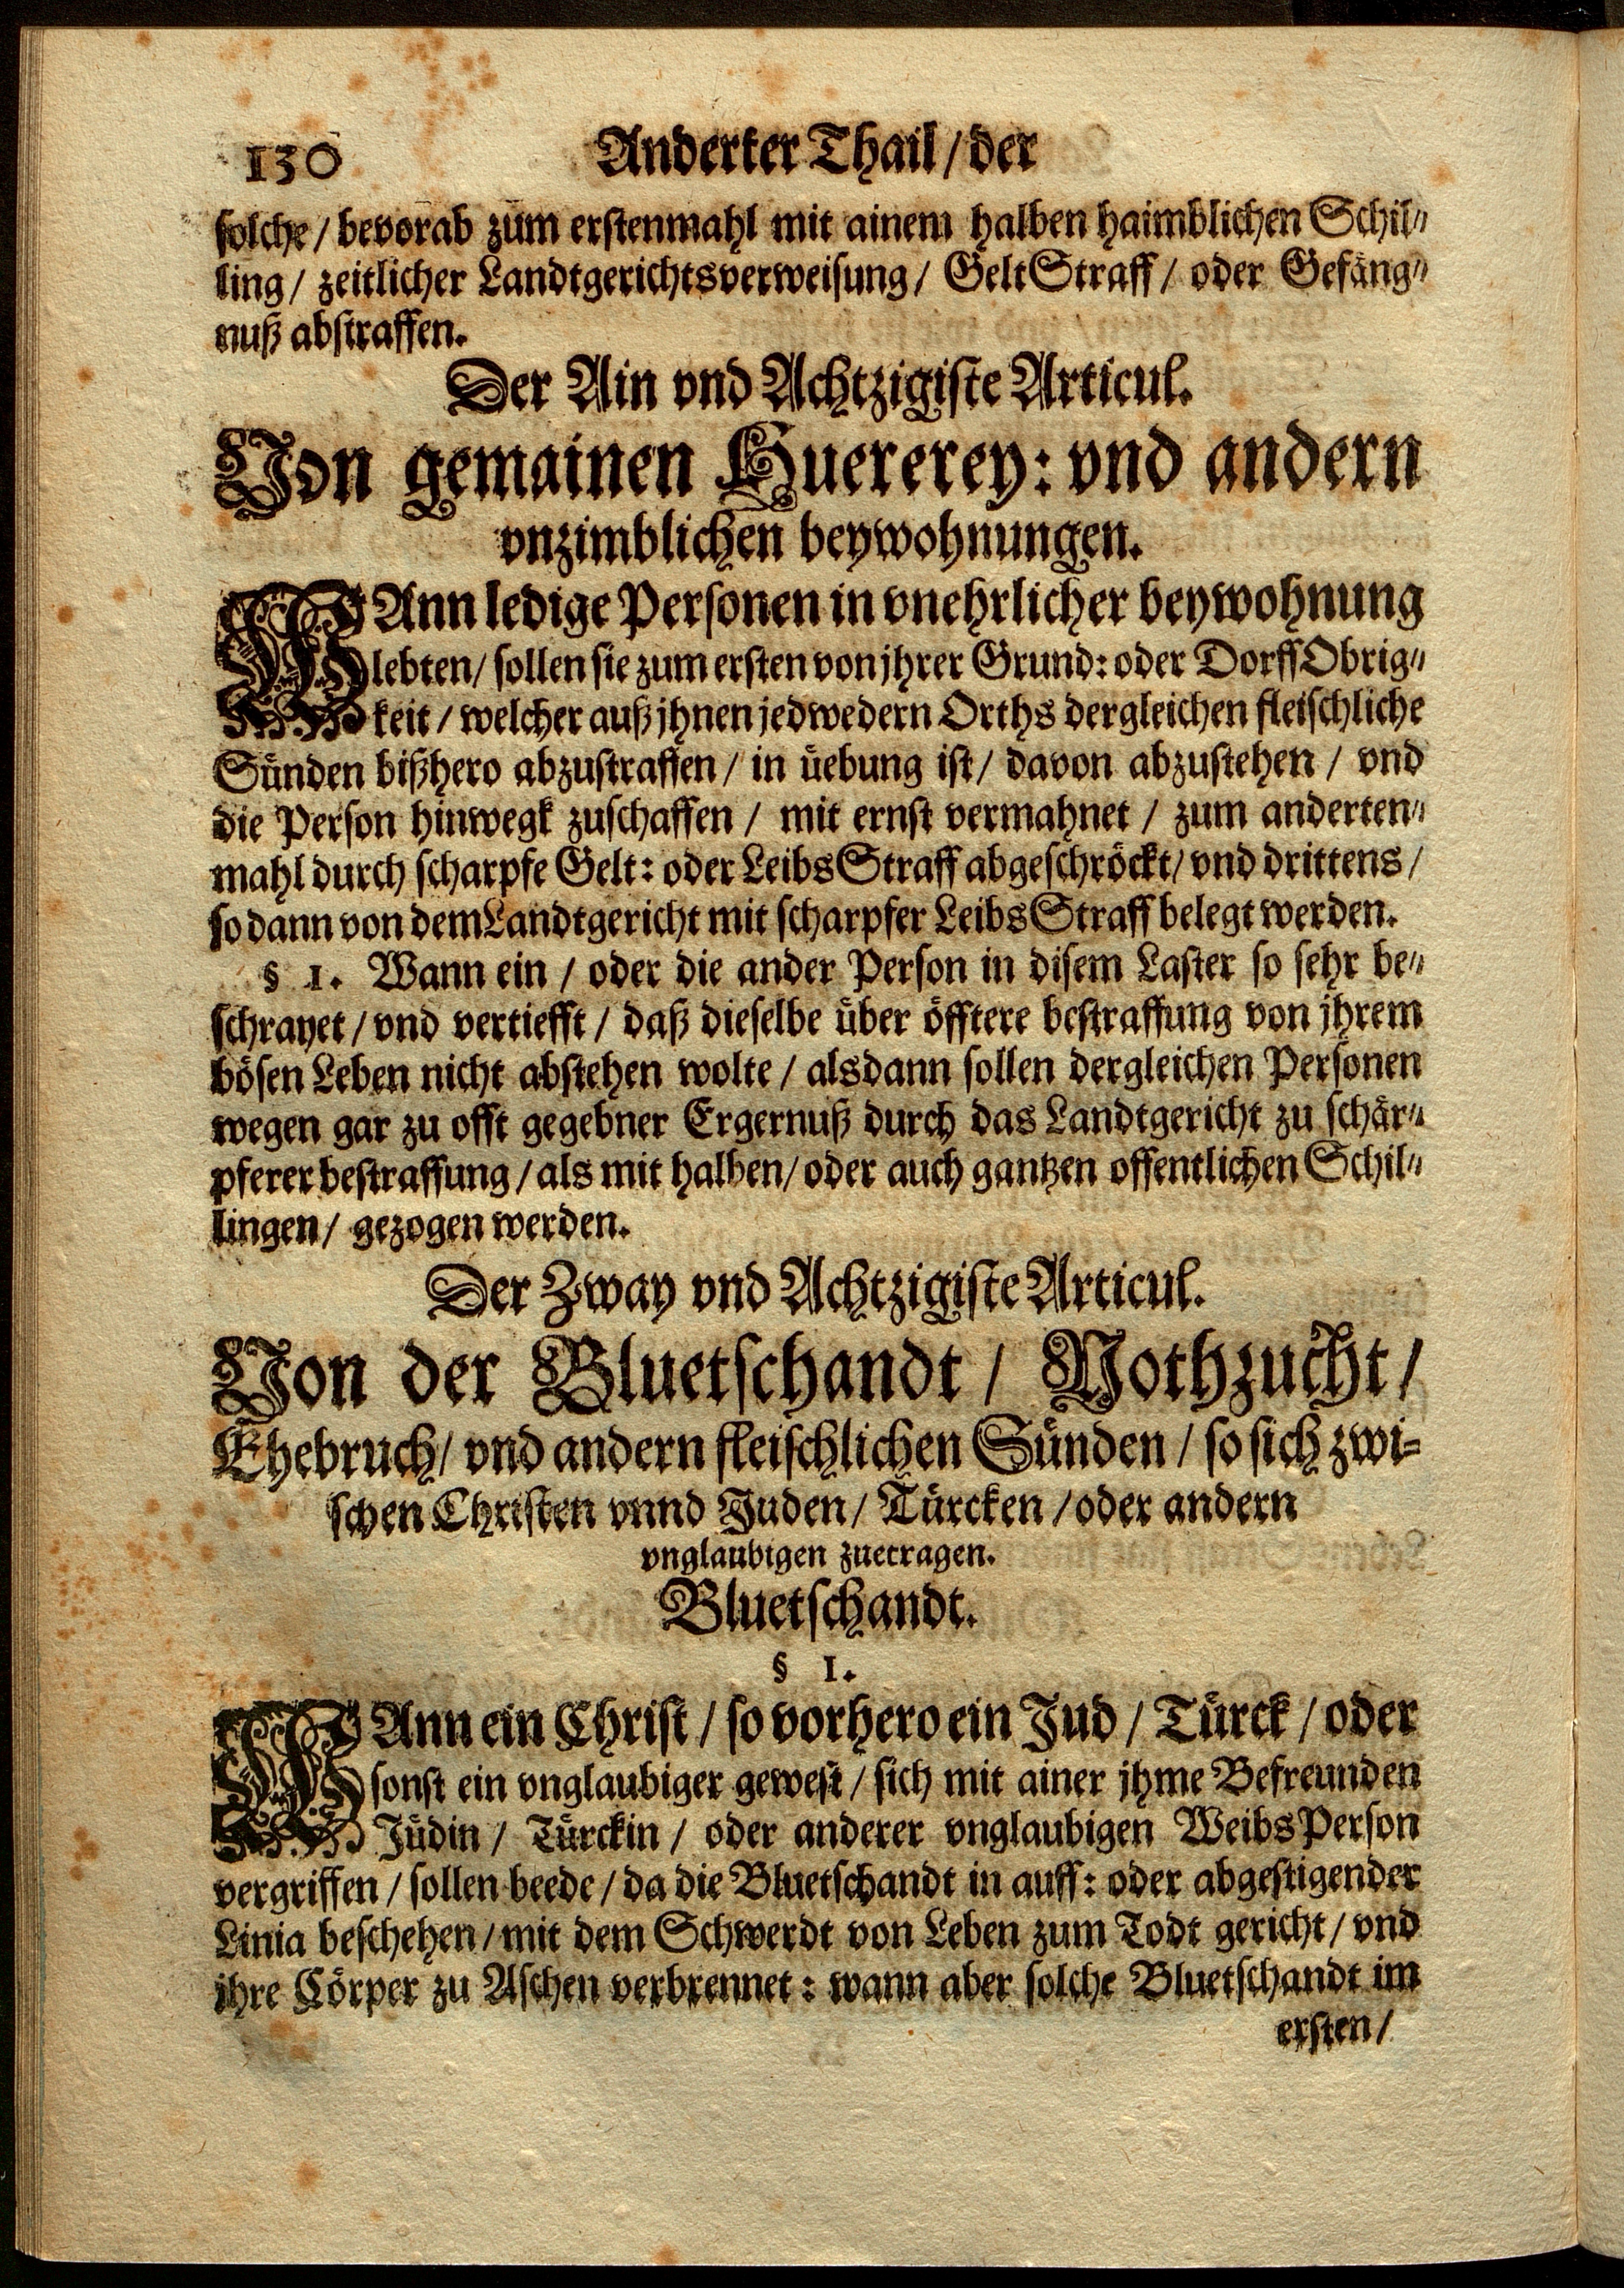 130 Anderter Thail / der
solche / bevorab zum erstenmahl mit ainem halben haimblichen Schil⸗
ling / zeitlicher Landtgerichtsverweisung / Gelt Straff / oder Gefäng⸗
nuß abstraffen.
Der Ain vnd Achtzigiste Articul.
Von gemainen Huererey: vnd andern
vnzimblichen beywohnungen.
WAnn ledige Personen in vnehrlicher beywohnung
lebten / sollen sie zum ersten von jhrer Grund: oder Dorff Obrig⸗
keit / welcher auß jhnen jedwedern Orths dergleichen fleischliche
Sünden bißhero abzustraffen / in üebung ist / davon abzustehen / vnd
die Person hinwegk zuschaffen / mit ernst vermahnet / zum anderten⸗
mahl durch scharpfe Gelt: oder Leibs Straff abgeschröckt / vnd drittens /
so dann von dem Landtgericht mit scharpfer Leibs Straff belegt werden.
§ 1. Wann ein / oder die ander Person in disem Laster so sehr be⸗
schrayet / vnd vertiefft / daß dieselbe über öfftere bestraffung von jhrem
bösen Leben nicht abstehen wolte / alsdann sollen dergleichen Personen
wegen gar zu offt gegebner Ergernuß durch das Landtgericht zu schär⸗
pferer bestraffung / als mit halben / oder auch gantzen offentlichen Schil⸗
lingen / gezogen werden.
Der Zway vnd Achtzigiste Articul.
Von der Bluetschandt / Nothzucht /
Ehebruch / vnd andern fleischlichen Sünden / so sich zwi⸗
schen Christen vnnd Juden / Türcken / oder andern
vnglaubigen zuetragen.
Bluetschandt.
§ 1.
WAnn ein Christ / so vorhero ein Jud / Türck / oder
sonst ein vnglaubiger gewest / sich mit ainer jhme Befreunden
Jüdin / Türckin / oder anderer vnglaubigen Weibs Person
vergriffen / sollen beede / da die Bluetschandt in auff: oder abgestigender
Linia beschehen / mit dem Schwerdt von Leben zum Todt gericht / vnd
ihre Cörper zu Aschen verbrennet: wann aber solche Bluetschandt im
ersten /